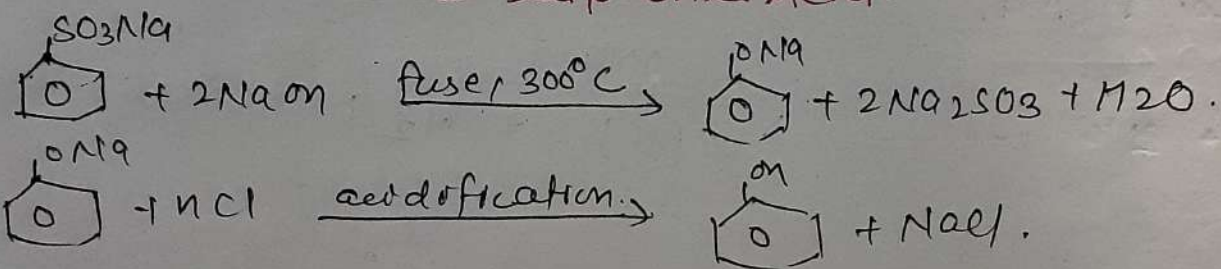 SO3Na
+ 2NaOH fuse, 300°C → ONa + 2Na2SO3 + H2O.
ONa
+ HCl acidification. → OH + NaCl.